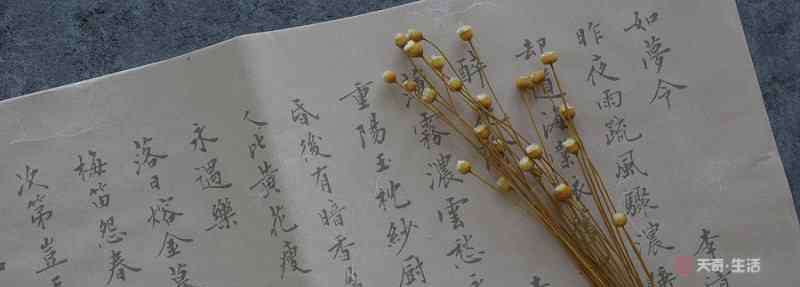 如夢令 李
昨夜雨疏風驟濃
却道海棠依
醉
薄霧濃雲愁
重陽玉枕紗厨
昏後有暗香
人比黃花瘦
永遇樂
落日熔金暮
梅笛怨春
次第豈
天奇·生活